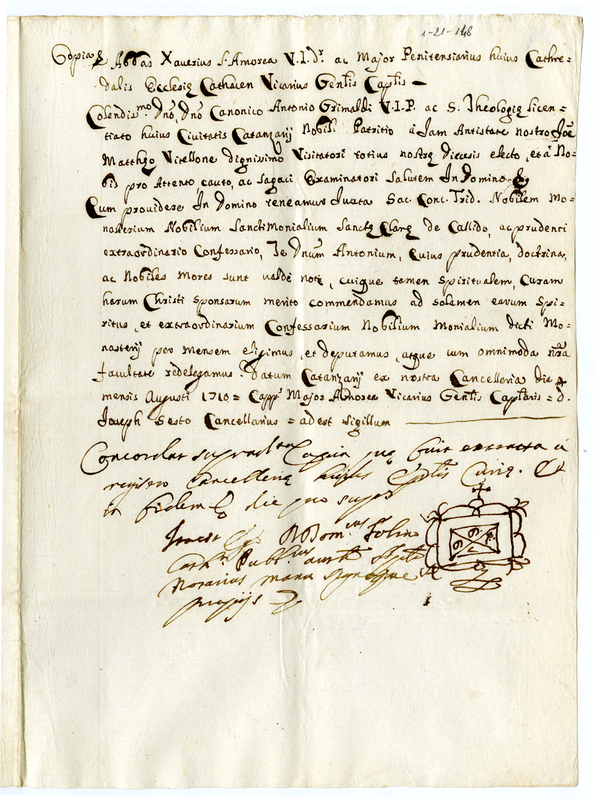 1-21-148
Copia Abbas Xaverius S. Amorea V.I.Dr. ac Major Penitensiarius huius Cathre=
dalis Ecclesię Cathacen Vicarius Genlis Caplis
Colendiss.mo Dno, Dno Canonico Antonio Grimaldi V.I.P. ac S. Theologię licen=
tiato huius Civitatis Catanzarij Nobili Patritio à Jam Antistite nostro Joe
Matthęo Vitellone dignissimo Visitatori totius nostrę diecesis electo, et à No=
bis pro Attento, cauto, ac sagaci Examinatori Salutem In Domino
Cum providere In Domino teneamus Juxta Sac. Conc. Trid. Nobilem Mo=
nasterium Nobilium SanctiMonialium Sanctę Clarę de Callido, ac prudenti
extraordinario Confessario, Te Dnum Antonium, Cuius prudentia, Doctrina,
ac Nobiles Mores sunt valdè notę, cuique tamen Spiritualem Curam
harum Christi Sponsarum merito commendamus ad solamen earum Spi=
ritus, et extraordinarium Confessarium Nobilium Monialium dicti Mo=
nasterij per mensem eligimus, et deputamus, atque cum omnimoda nra
facultate redelegamus. Datum Catanzarij ex nostra Cancelleria die
mensis Augusti 1710 = Capp. Major Amorea Vicarius Genlis Caplaris = d.
Joseph Sesto Cancellarius = adest Sigillum
Concordat suprad.ta Copia quę fuit extracta à
registro Cancellerię Curię. Et
in fidem die quo supra
Publ.cus
Notarius manu
proprijs